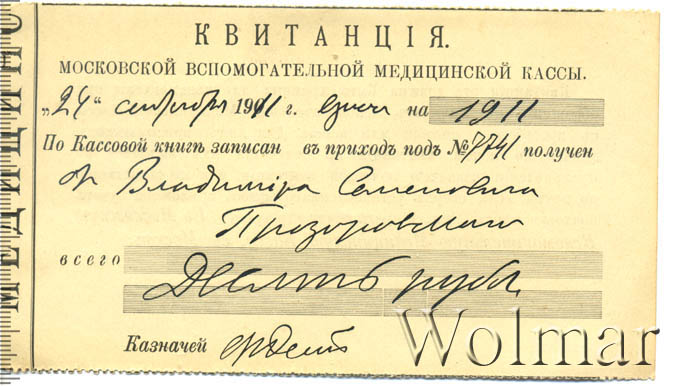 КВИТАНЦІЯ.
МОСКОВСКОЙ ВСПОМОГАТЕЛЬНОЙ МЕДИЦИНСКОЙ КАССЫ.
„24“ сентября 1911 г. на 1911
По Кассовой книгѣ записан въ приходъ подъ № 7741 получен
от Владиміра Семеновича
Прозоровскаго
всего Десять рубл.
Казначей
МЕДИЦИНС
Wolmar